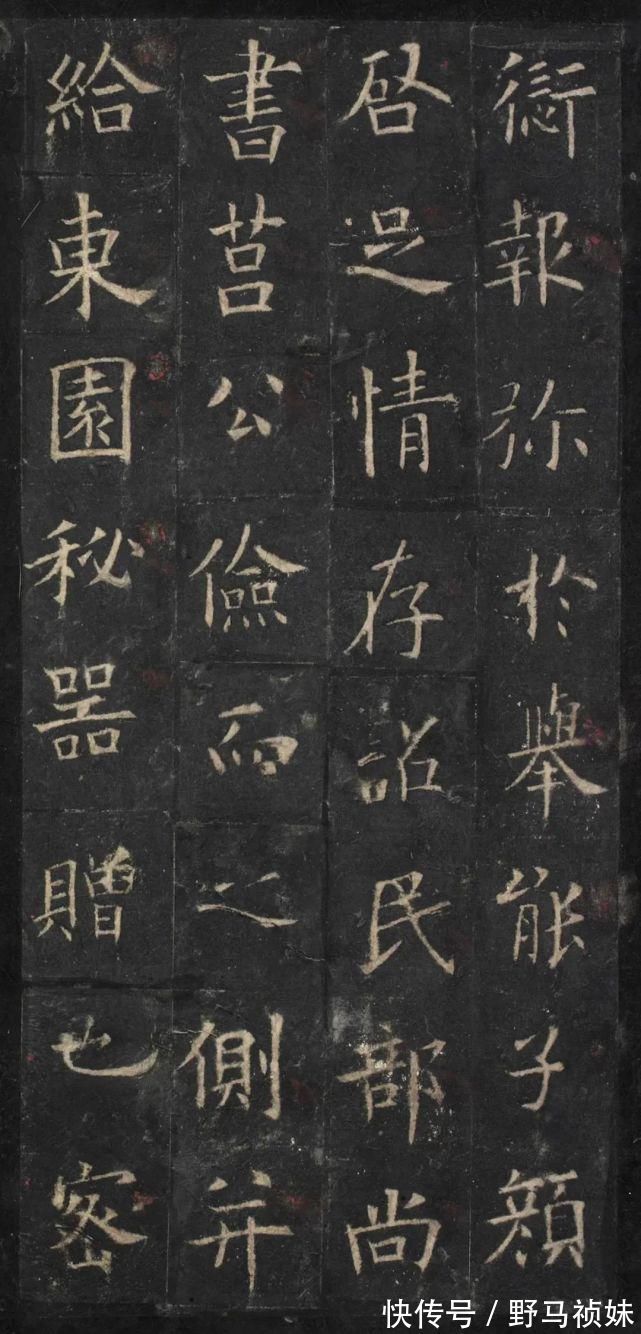 報弥於舉能子顔
启足情存詔民部尚
書莒公儉而之側并
給東園秘器贈也密
快传号 / 野马祯妹